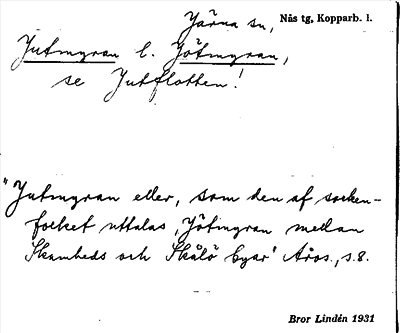 Järna sn, Nås tg, Kopparb. l.
Jutmyran l. Jötmyran,
se Jutflotten!
"Jutmyran eller, som den af socken-
folket uttalas, 'Jötmyran mellan
Skamheds och Skålö byar' Åros., s. 8.
Bror Lindén 1931